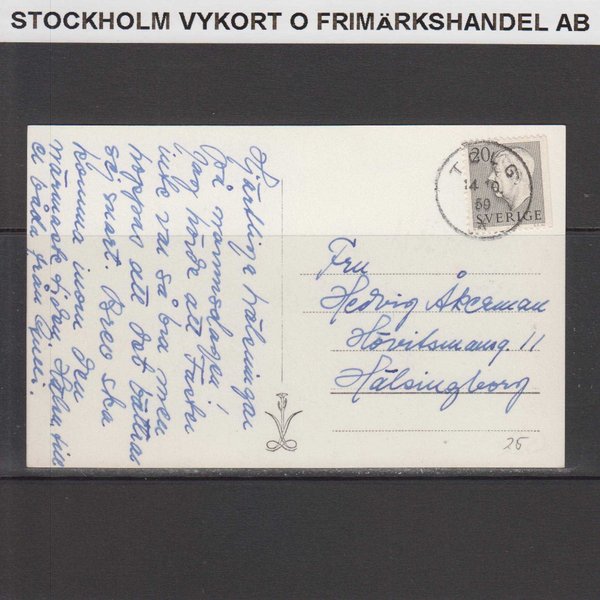 STOCKHOLM VYKORT O FRIMÄRKSHANDEL AB
Hjärtliga hälsningar
på namnsdagen!
Jag hörde att Faster
inte var så bra men
hoppas att det bättras
så snart. Brev ska
komma inom den
närmaste tiden. Hälsn. till
er båda från
20
TOLG
14 10
59
SVERIGE
Fru
Hedvig Åkerman
Hövitsmansg. 11
Hälsingborg
25